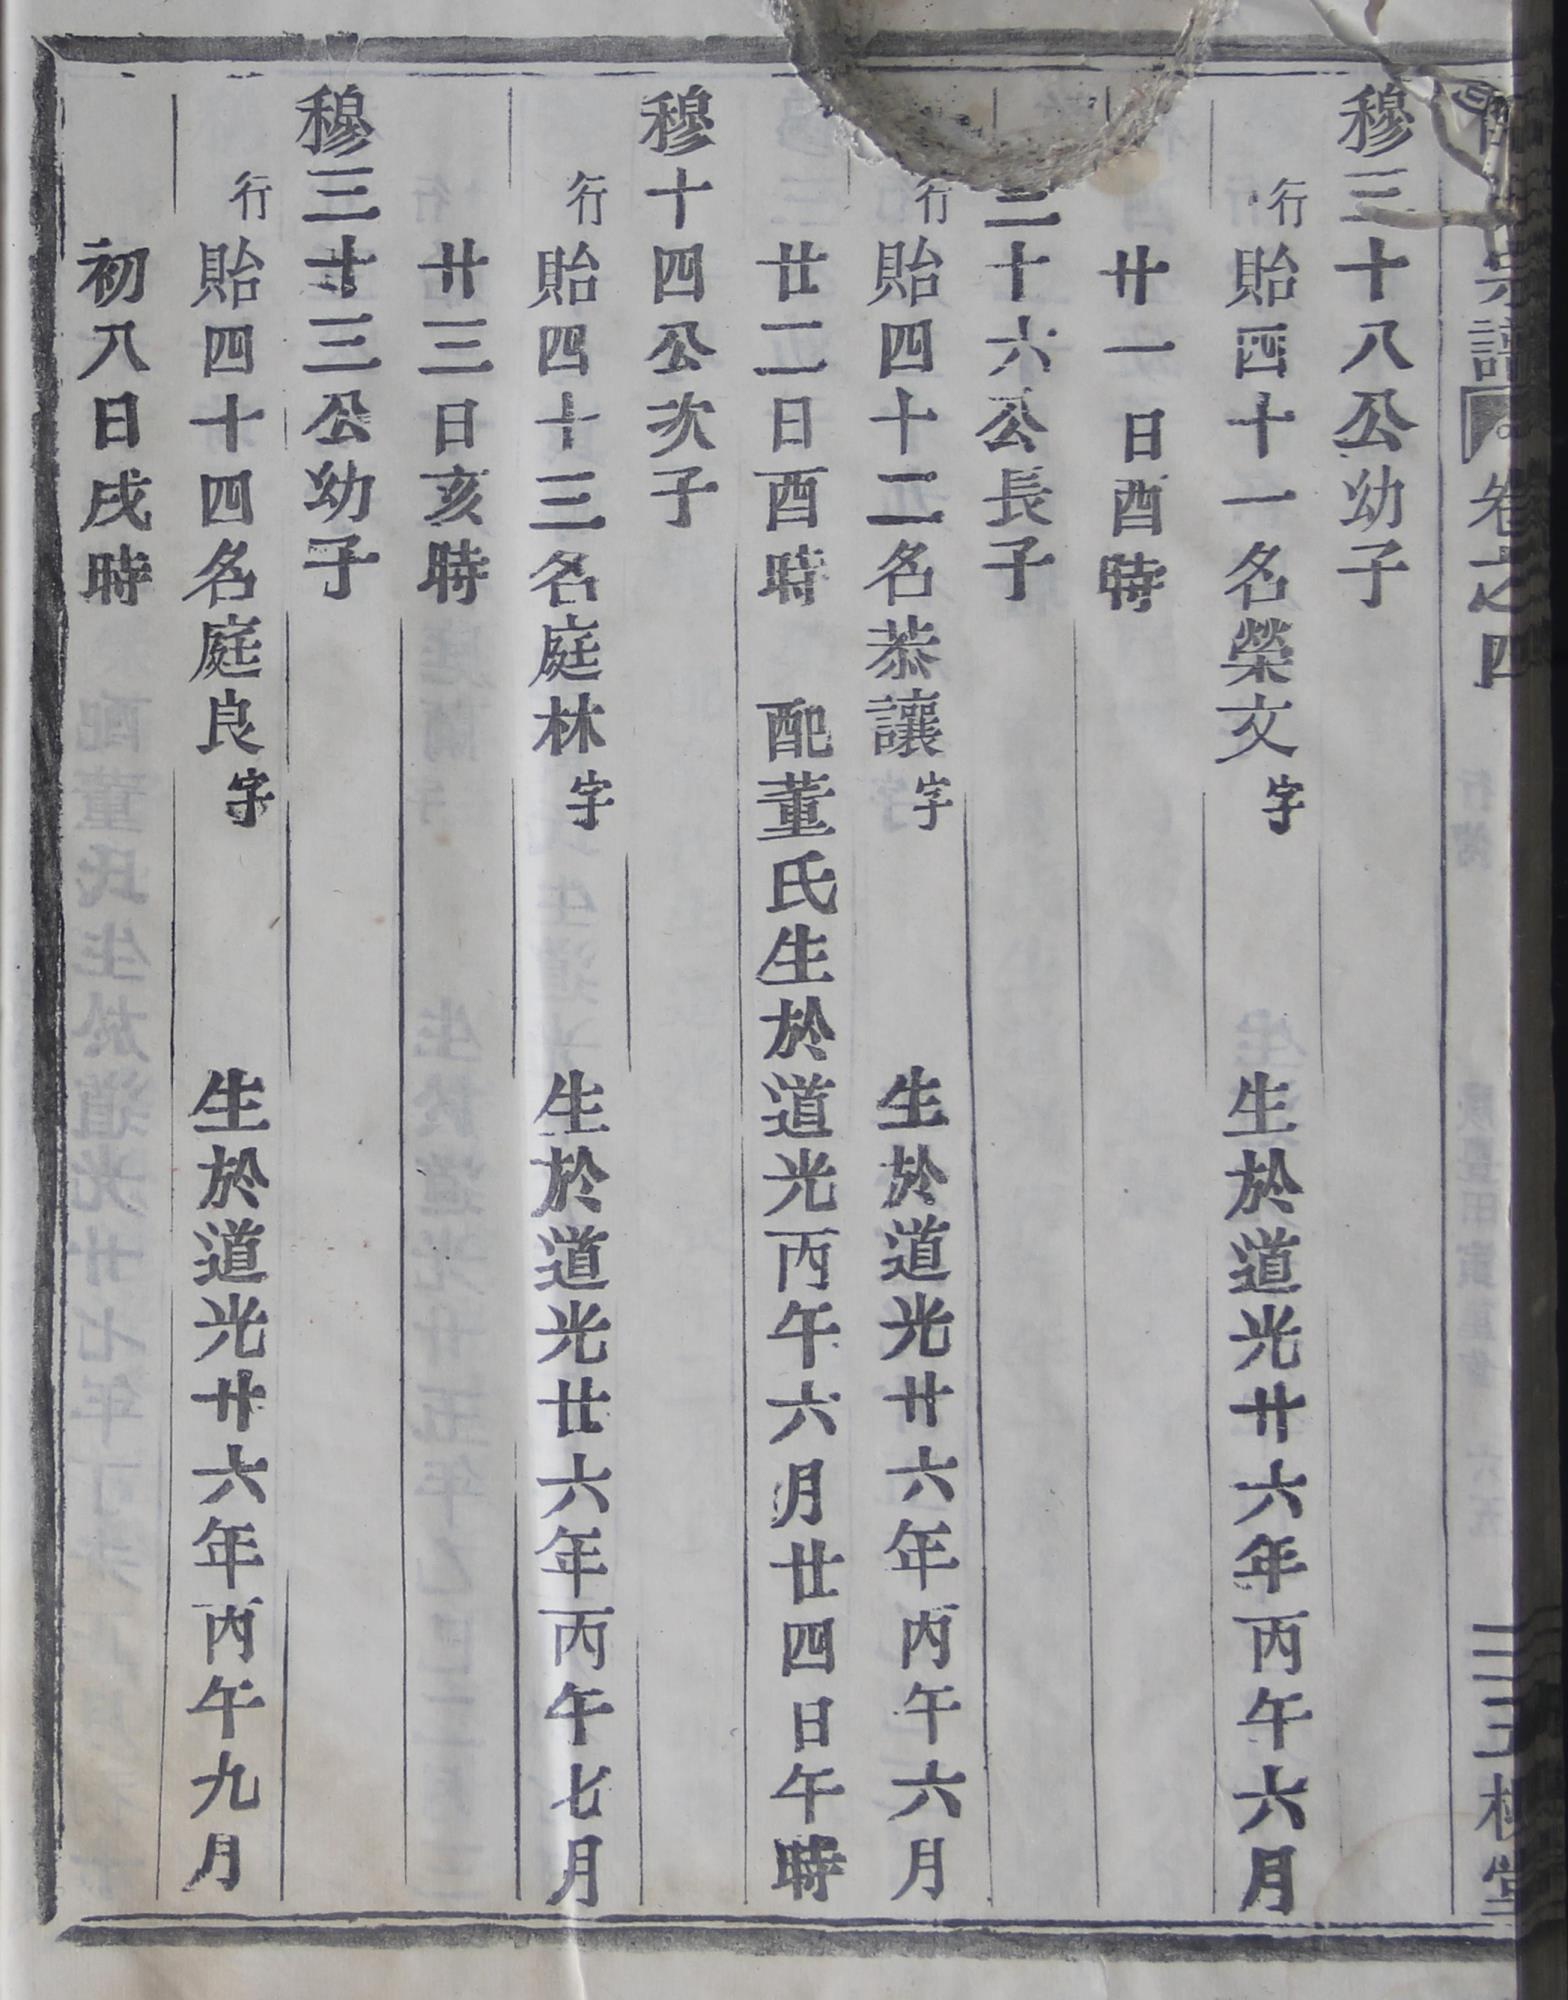 宗譜 卷之四 三王槐堂
穆三十八公幼子
行貽四十一名榮文字 生於道光廿六年丙午六月
廿一日酉時
三十六公長子
行貽四十二名恭讓字 生於道光廿六年丙午六月
廿二日酉時 配董氏生於道光丙午六月廿四日午時
穆十四公次子
行貽四十三名庭林字 生於道光廿六年丙午七月
廿三日亥時
穆三廿三公幼子
行貽四十四名庭良字 生於道光廿六年丙午九月
初八日戌時